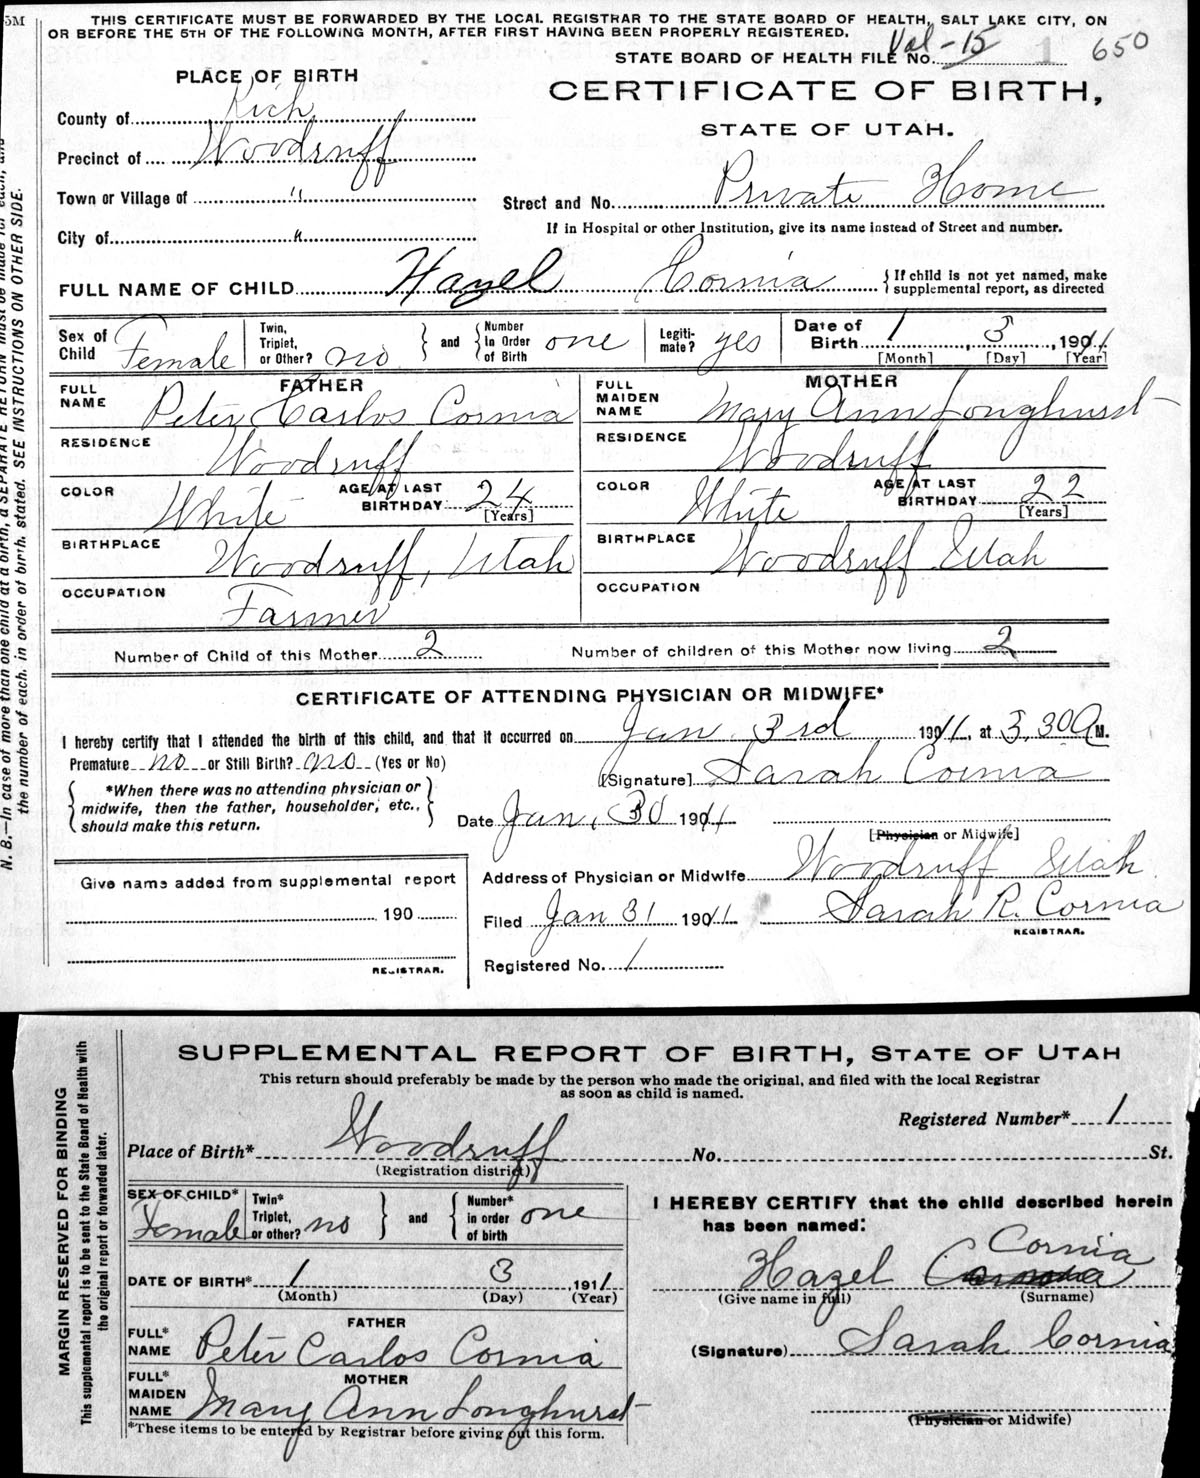 5M
THIS CERTIFICATE MUST BE FORWARDED BY THE LOCAL REGISTRAR TO THE STATE BOARD OF HEALTH, SALT LAKE CITY, ON
OR BEFORE THE 5TH OF THE FOLLOWING MONTH, AFTER FIRST HAVING BEEN PROPERLY REGISTERED.
STATE BOARD OF HEALTH FILE No. Vol-15 1 650
PLACE OF BIRTH
CERTIFICATE OF BIRTH,
STATE OF UTAH.
County of Rich
Precinct of Woodruff
Town or Village of "
City of "
Street and No. Private Home
If in Hospital or other Institution, give its name instead of Street and number.
FULL NAME OF CHILD Hazel Cornia {If child is not yet named, make
supplemental report, as directed
Sex of Child Female
Twin, Triplet, or Other? no } and { Number In Order of Birth one
Legiti-mate? yes
Date of Birth 1, 3, 1911
[Month] [Day] [Year]
FATHER
FULL NAME Peter Carlos Cornia
RESIDENCE Woodruff
COLOR White AGE AT LAST BIRTHDAY 24
[Years]
BIRTHPLACE Woodruff, Utah
OCCUPATION Farmer
MOTHER
FULL MAIDEN NAME Mary Ann Longhurst
RESIDENCE Woodruff
COLOR White AGE AT LAST BIRTHDAY 22
[Years]
BIRTHPLACE Woodruff Utah
OCCUPATION
Number of Child of this Mother 2 Number of children of this Mother now living 2
CERTIFICATE OF ATTENDING PHYSICIAN OR MIDWIFE*
I hereby certify that I attended the birth of this child, and that it occurred on Jan. 3rd 1911, at 3.30 A M.
Premature no or Still Birth? no (Yes or No)
[Signature] Sarah Cornia
{*When there was no attending physician or
midwife, then the father, householder, etc.,
should make this return.}
Date Jan. 30 1911
[Physician or Midwife]
Address of Physician or Midwife Woodruff Utah.
Give name added from supplemental report
190
REGISTRAR.
Filed Jan 31 1911 Sarah R. Cornia
REGISTRAR.
Registered No. 1
N. B.—In case of more than one child at a birth, a SEPARATE RETURN must be made for each, and
the number of each, in order of birth, stated. SEE INSTRUCTIONS ON OTHER SIDE.
SUPPLEMENTAL REPORT OF BIRTH, STATE OF UTAH
This return should preferably be made by the person who made the original, and filed with the local Registrar
as soon as child is named.
Registered Number* 1
Place of Birth* Woodruff No. St.
(Registration district)
SEX OF CHILD* Female
Twin* Triplet, or other? no } and { Number* in order of birth one
DATE OF BIRTH* 1 3, 1911
(Month) (Day) (Year)
FATHER
FULL* NAME Peter Carlos Cornia
MOTHER
FULL* MAIDEN NAME Mary Ann Longhurst
*These items to be entered by Registrar before giving out this form.
I HEREBY CERTIFY that the child described herein
has been named:
Hazel Cornia
(Give name in full) (Surname)
(Signature) Sarah Cornia
(Physician or Midwife)
MARGIN RESERVED FOR BINDING
This supplemental report is to be sent to the State Board of Health with
the original report or forwarded later.